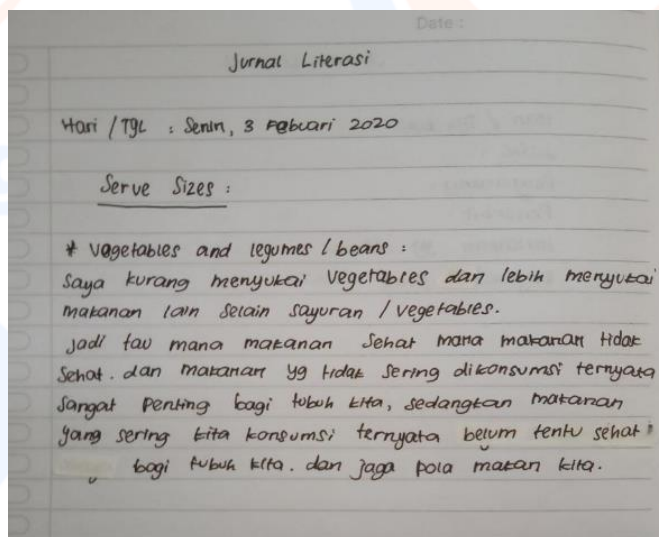 Date :
Jurnal Literasi
Hari / TgL : Senin, 3 Febuari 2020
Serve Sizes :
* vegetables and legumes / beans :
Saya kurang menyukai vegetables dan lebih menyukai
makanan lain selain sayuran / vegetables.
Jadi tau mana makanan Sehat mana makanan tidak
Sehat. dan makanan yg tidak Sering dikonsumsi ternyata
Sangat Penting bagi tubuh kita, sedangkan makanan
yang sering kita konsumsi ternyata belum tentu sehat
bagi tubuh kita. dan jaga pola makan kita.